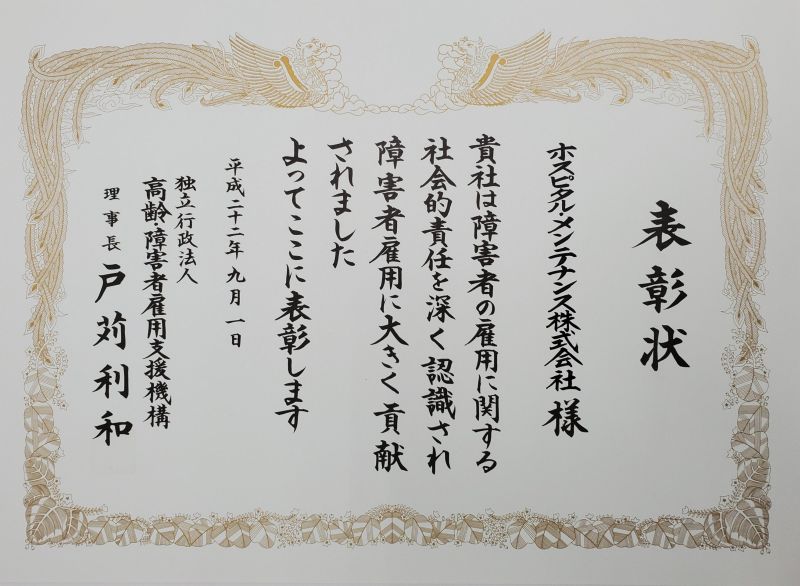 表彰状
ホスピタル・メンテナンス株式会社 様
貴社は障害者の雇用に関する
社会的責任を深く認識され
障害者雇用に大きく貢献
されました
よってここに表彰します
平成二十二年九月一日
独立行政法人
高齢・障害者雇用支援機構
理事長 戸苅利和